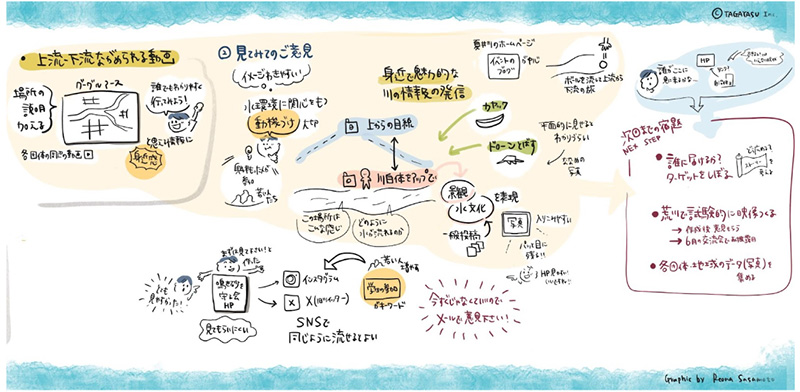 © TAGAYASU Inc.
・上流〜下流ながめられる動画
場所の
説明
加える
グーグルアース
誰でもわかりやすく
行ってみよう!
と思う情報に
各団体の閲覧動画
身近に
② 見てみてのご意見
イメージわきやすい!
水環境に関心をもつ
動機づけ
大切
若い人
たち
身近で魅力的な
川の情報の発信
上からの目線
川自体をアップで
この場所は
こんな感じ
どのように
水が流れるのか
荒川のホームページ
イベントの
ブログ
が中心
ボールを流して上流から
下流の旅
カヤック
ドローンとばす
平面的に見せると
わかりづらい
ななめの
写真
景観
水文化
を表現
一般投稿
写真
入りこみやすい
パッと目に
残る!!
HP見やすい
あずは見て下さい!と
作った
とても
見やすかった!
守る会
HP
見てもらいにくい
インスタグラム
X(旧ツイッター)
SNSで
同じように流せるとよい
若い人増やす
学生の参加
がキーワード
今すぐじゃなくていいので
メールで意見下さい!
誰がここに
HP
リンク
次回までの宿題
NEXT STEP
・誰に届けるか?
ターゲットをしぼる
どう広める?
ストーリー
を考える
・荒川で試験的に映像つくる
→ 作成後意見もらう
→ 6月の交流会で初披露目
・各団体・地域のデータ(写真)を
集める
Graphic by Reona Sasamoto